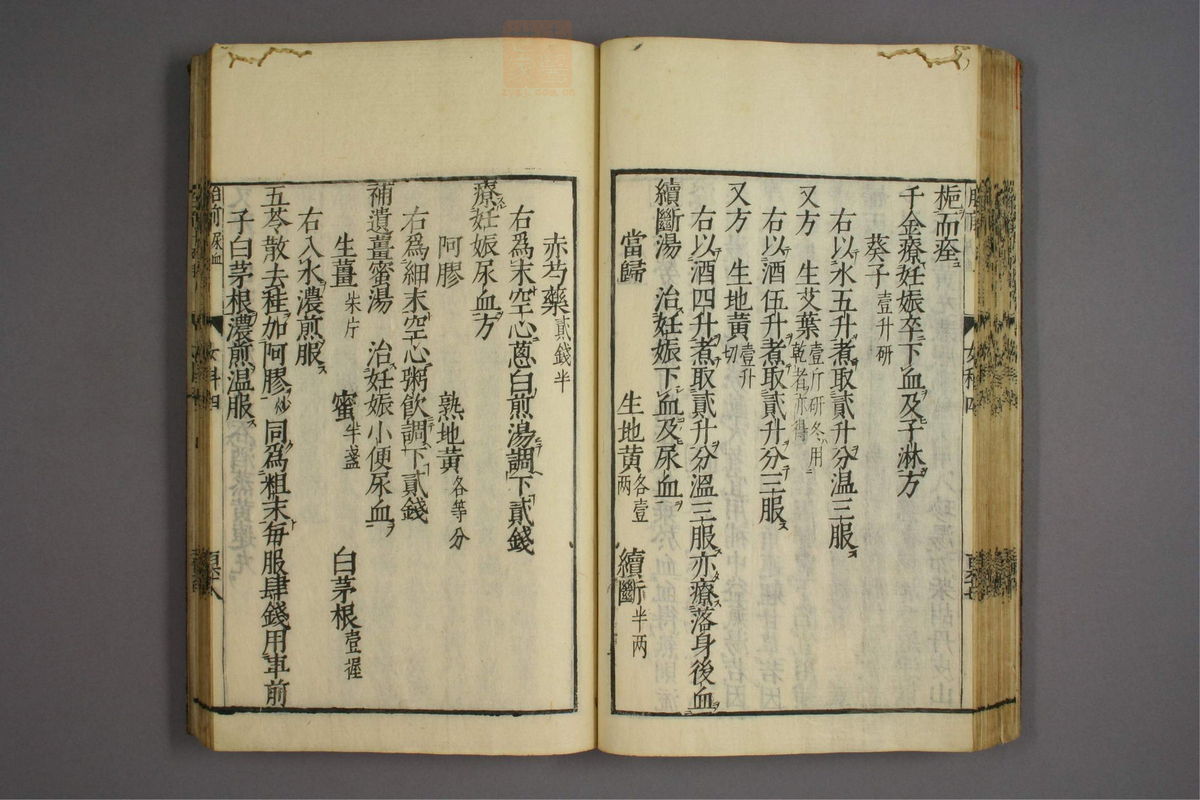 梔而痊
千金療妊娠卒下血及子淋方
葵子壹升研
右以水五升煮取貳升分溫三服
又方　生艾葉壹斤研冬用乾者亦得
右以酒伍升煮取貳升分三服
又方　生地黃壹升切
右以酒四升煮取貳升分溫三服亦療落身後血
續斷湯　治妊娠下血及尿血
當歸　生地黄各壹两　續斷半两
赤芍藥貳錢半
右爲末空心蔥白煎湯調下貳錢
療妊娠尿血方
阿膠　熟地黄各等分
右爲細末空心粥飲調下貳錢
補遺薑蜜湯　治妊娠小便尿血
生薑柒片　蜜半盞　白茅根壹握
右入水濃煎服
五苓散去桂加阿膠炒同爲粗末每服肆錢用車前
子白茅根濃煎温服
胎前　尿血　女科四